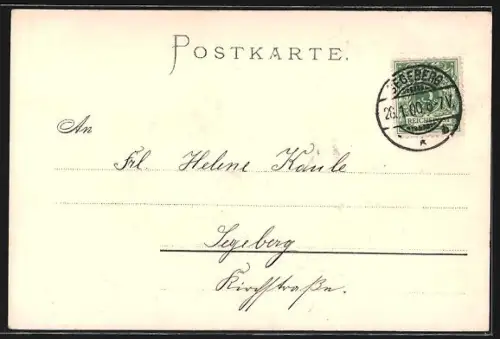 POSTKARTE.
SEGEBERG
26.1.00.6-7V.
* b
REICHSPOST
An
Frl. Helene Kaule
Segeberg
Kirchstraße.